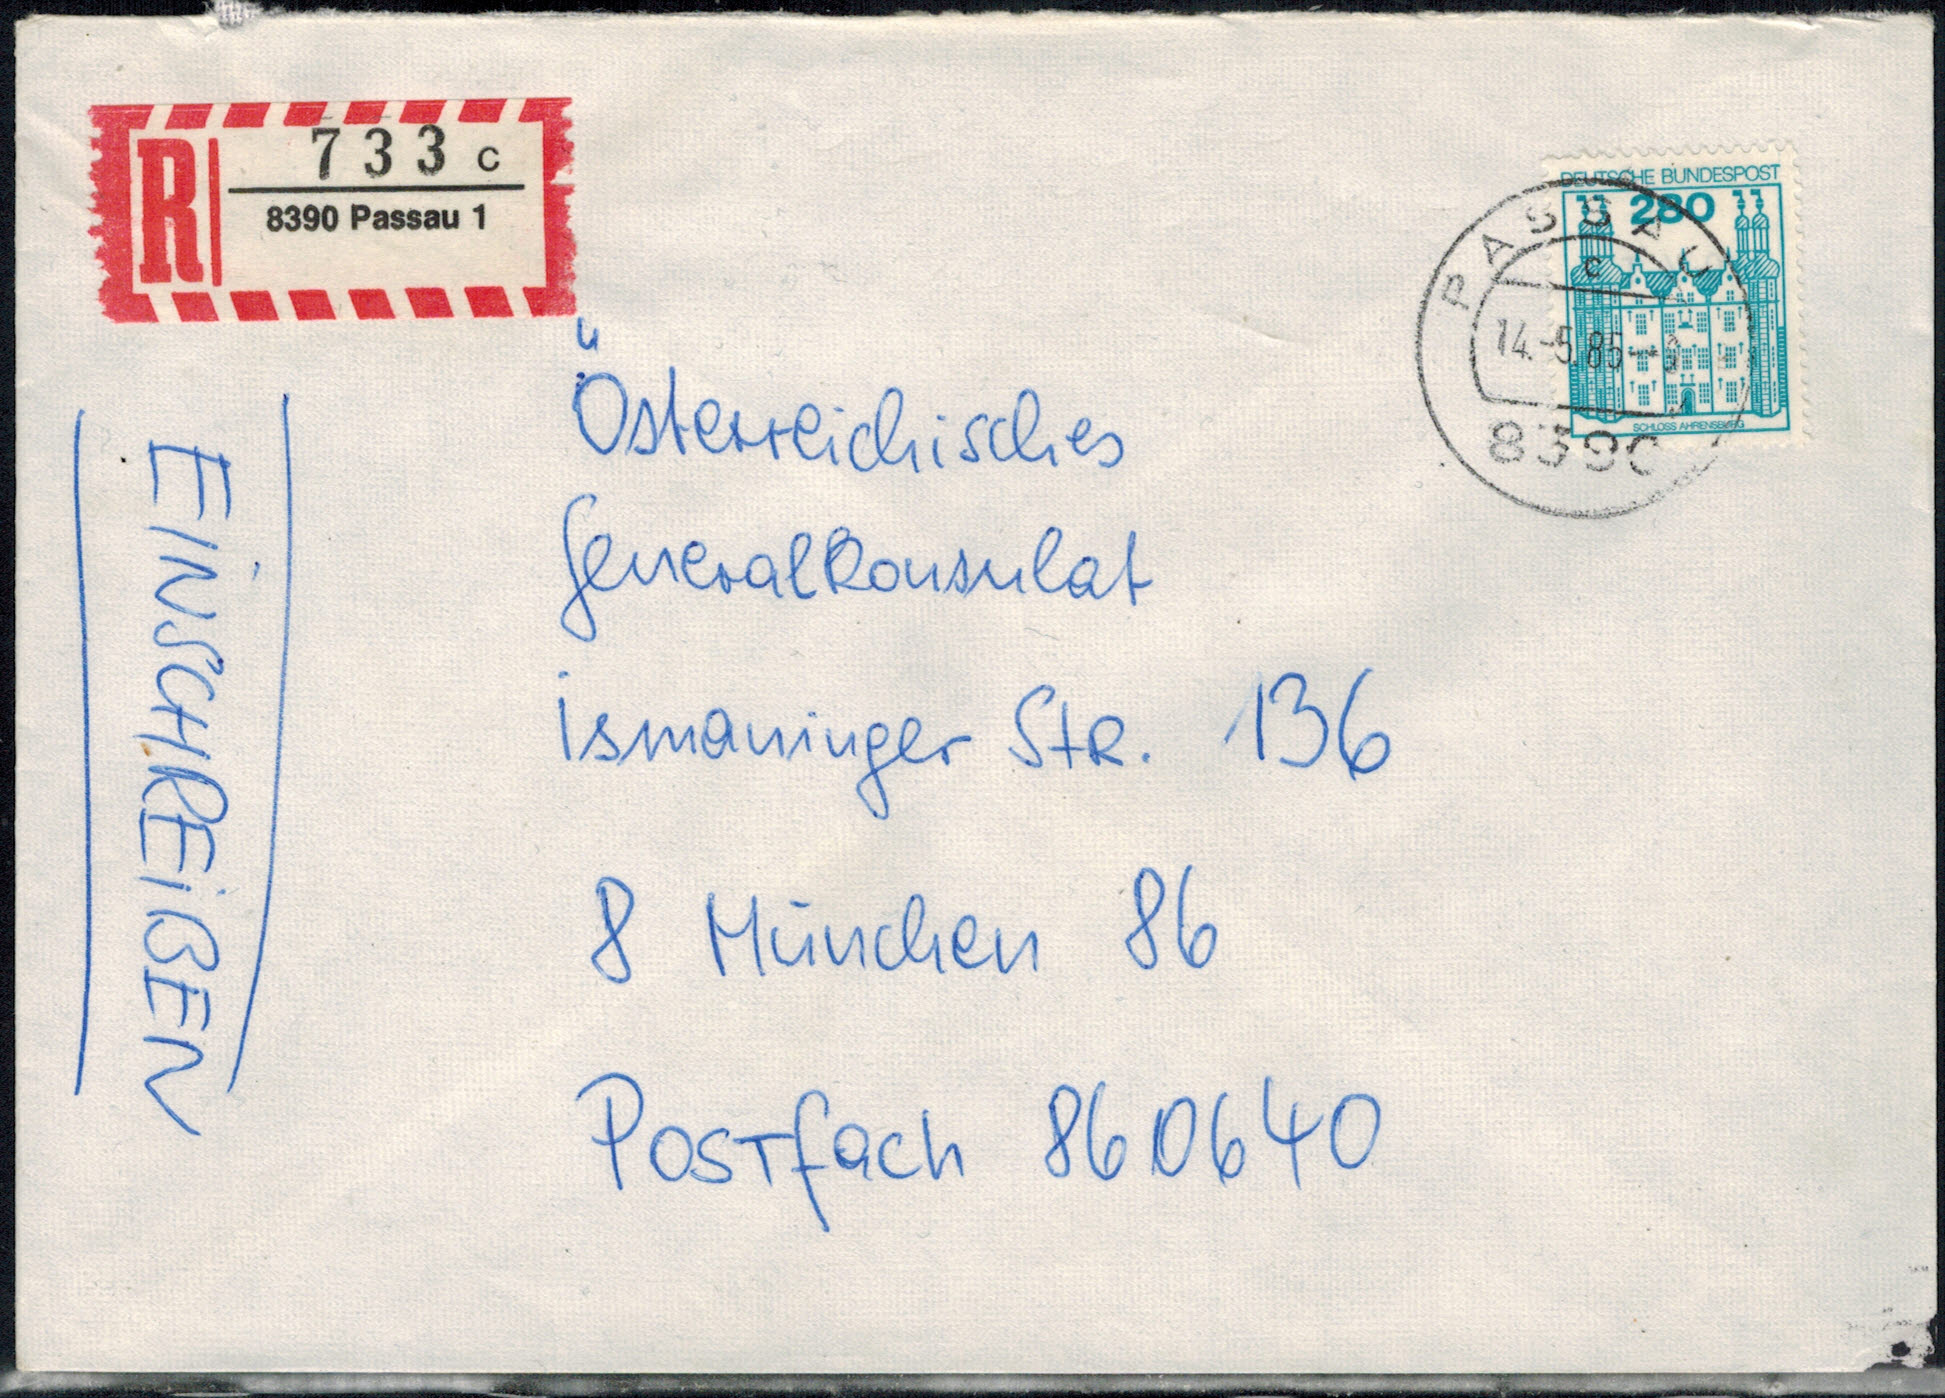 R
733 c
8390 Passau 1
DEUTSCHE BUNDESPOST
280
SCHLOSS AHRENSBURG
PASSAU
c
14.-5.85
8390
EINSCHREIBEN
Österreichisches
Generalkonsulat
Ismaninger Str. 136
8 München 86
Postfach 860640